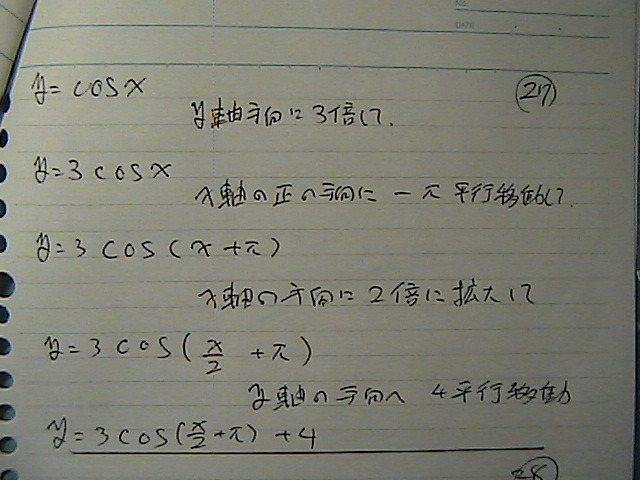 NO.
DATE
y = cosx
㉗
y軸方向に3倍して、
y = 3 cosx
x軸の正の方向に -π 平行移動して、
y = 3 cos (x + π)
x軸の方向に2倍に拡大して
y = 3 cos (x/2 + π)
y軸の方向へ 4平行移動
y = 3 cos (x/2 + π) + 4